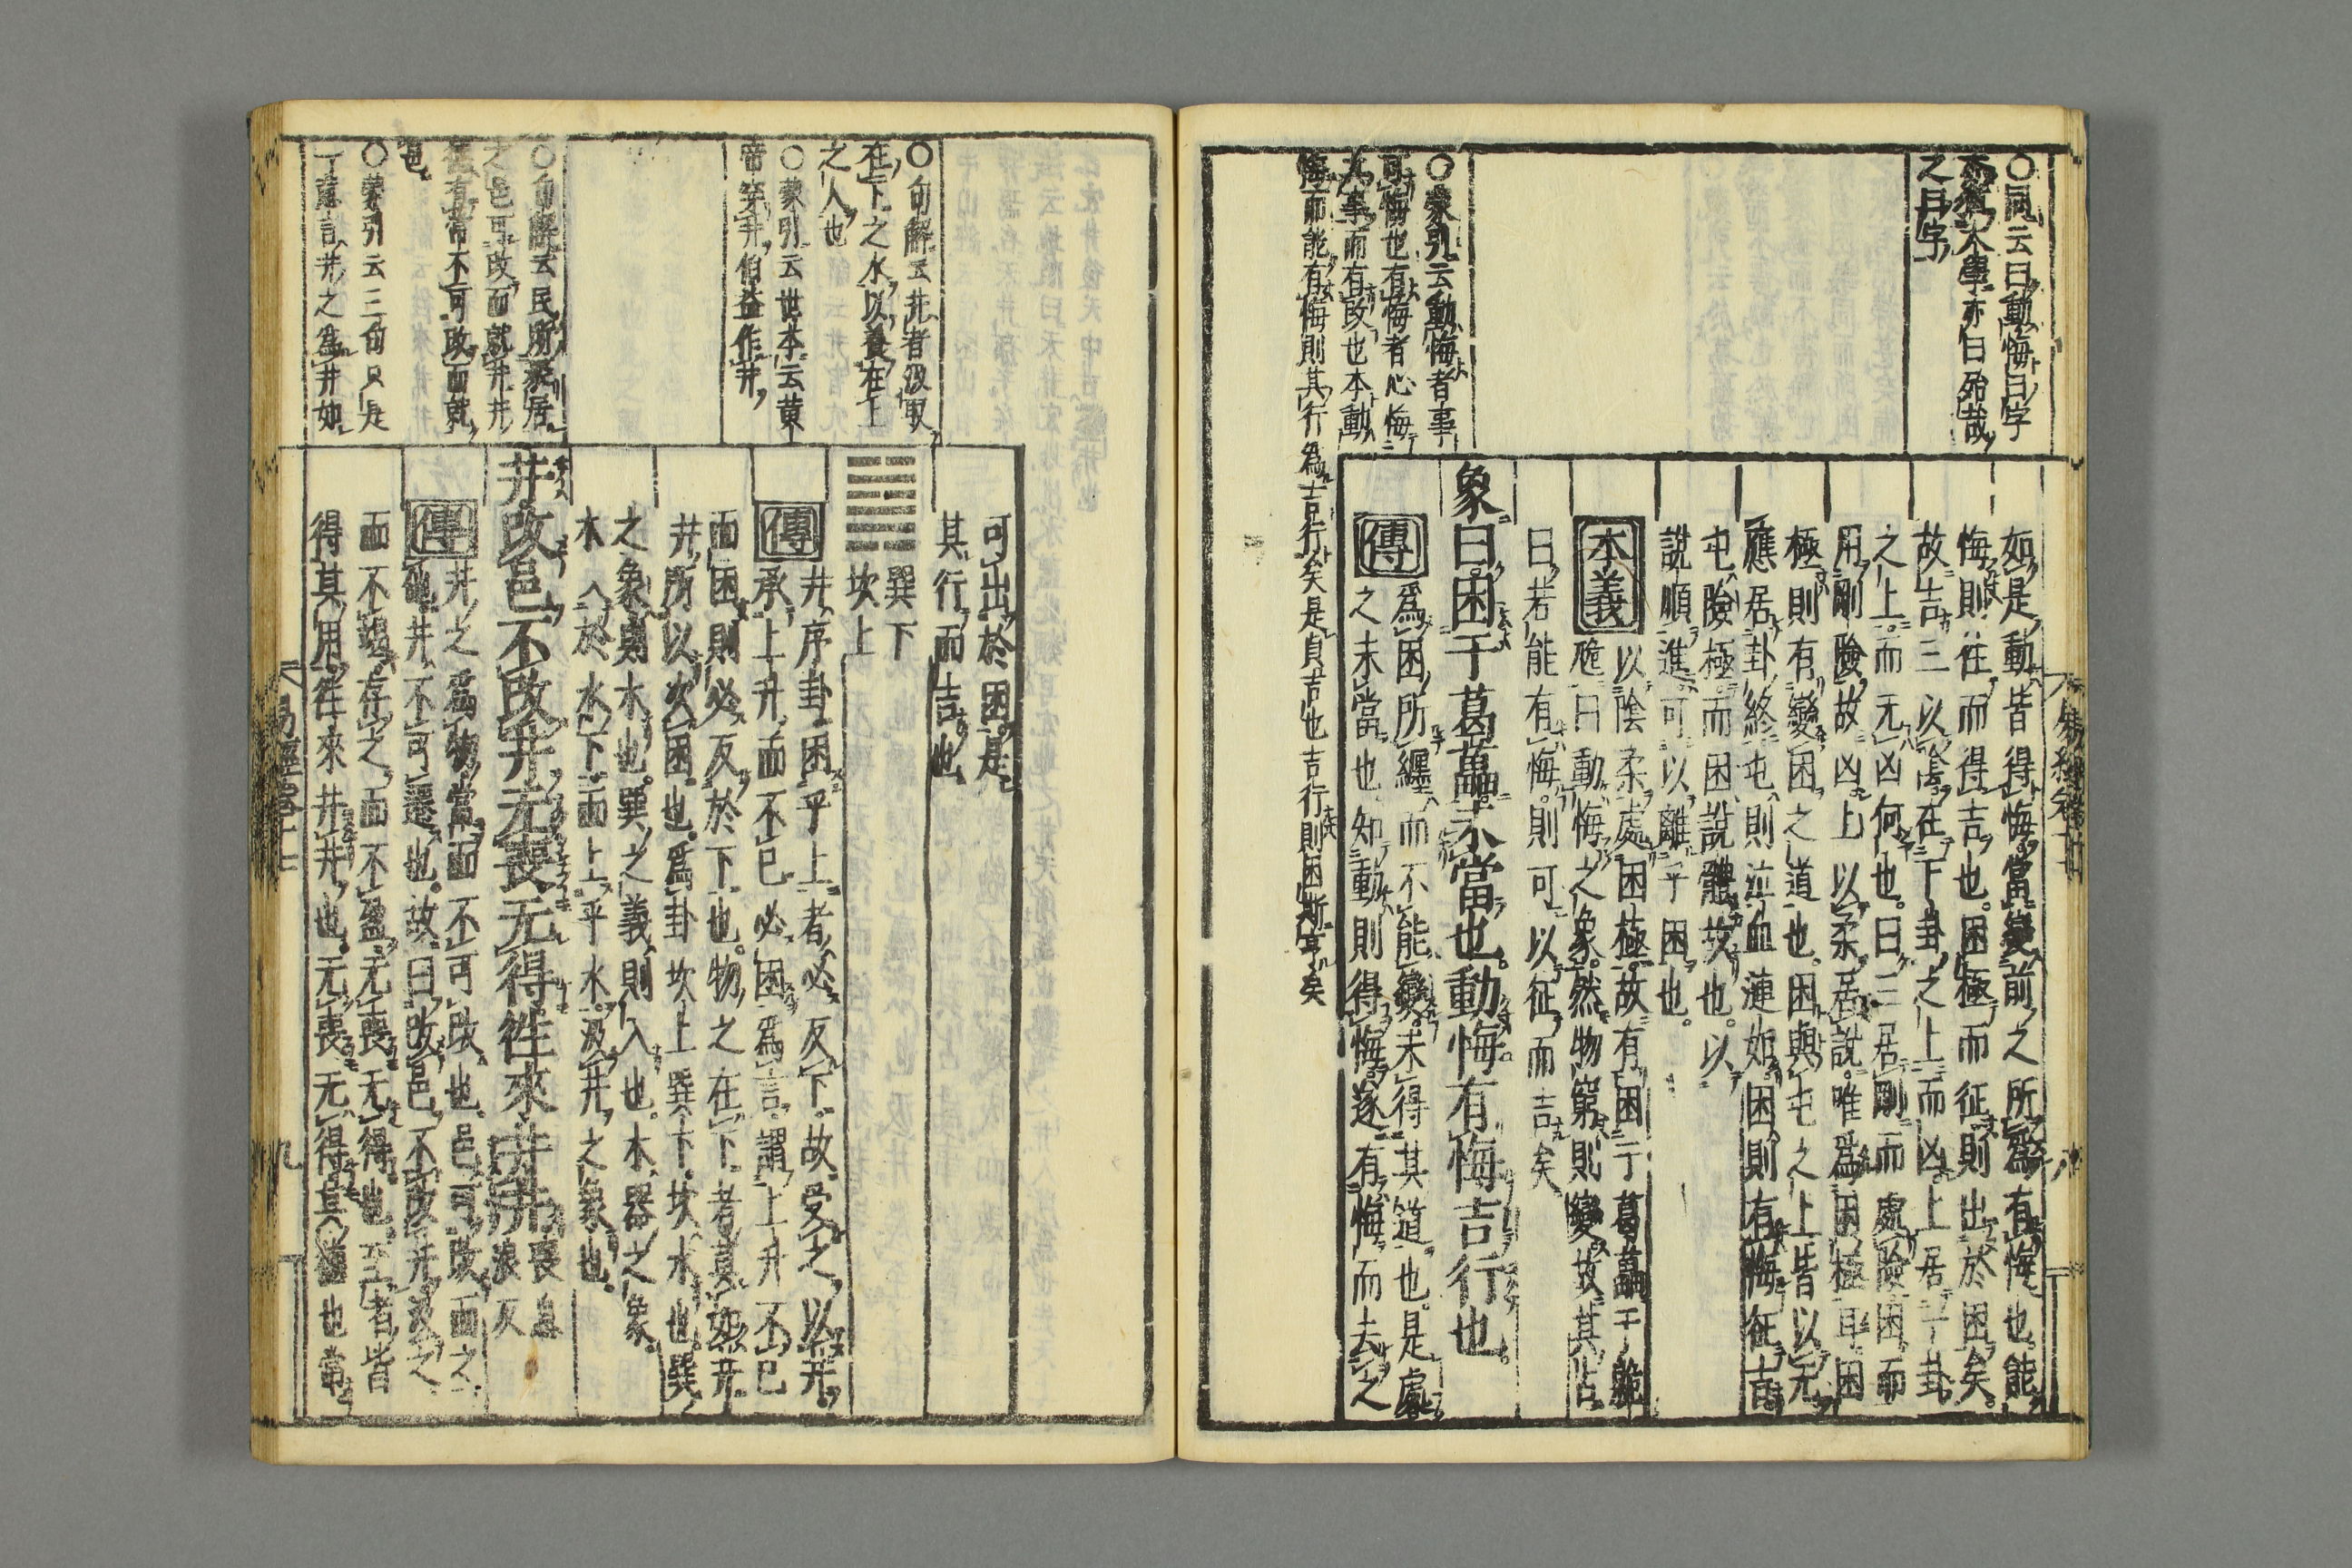 如是動皆得悔當變前之所爲有悔也能
悔則往而得吉也困極而征則出於困矣
故吉三以陰在下卦之上而凶上居一卦
之上而无凶何也曰三居剛而處險困而
用剛險故凶上以柔居說唯爲困極耳困
極則有變困之道也困與屯之上皆以无
應居卦終屯則泣血漣如困則有悔征吉
屯險極而困說體故也以
說順進可以離乎困也
本義 以陰柔處困極故有困于葛藟于臲
卼曰動悔之象然物窮則變故其占
曰若能有悔則可以征而吉矣
象曰困于葛藟未當也動悔有悔吉行也
傳 爲困所纏而不能變未得其道也是處
之未當也知動則得悔遂有悔而去之
○同云曰動悔曰字
大學亦曰殆哉
之曰字
○蒙引云動悔者事
可悔也有悔者心悔
其事而有改也本動
悔而能有悔則其行爲吉行矣是貞吉也吉行則困斯亨矣
可出於困是
其行而吉也
巽下
坎上
傳 井序卦困乎上者必反下故受之以井
承上升而不已必困爲言謂上升不已
而困則必反於下也物之在下者莫如井
井所以次困也爲卦坎上巽下坎水也巽
之象則木也巽之義則入也木器之象
木入於水下而上乎水汲井之象也
井改邑不改井无喪无得往來井井 喪息
浪反
傳 井之爲物當而不可改也邑可改而之
他井不可遷也故曰改邑不改井汲之
而不竭存之而不盈无喪无得也至者皆
得其用往來井井也无喪无得其德也常
○句解云井者汲取
在下之水以養在上
之人也
○蒙引云世本云黄
帝穿井伯益作井
○句解云民所聚居
之邑可改而就井井
有常不可改而就
邑
○蒙引云三句只是
一意言井之爲井如
易經卷十七
九